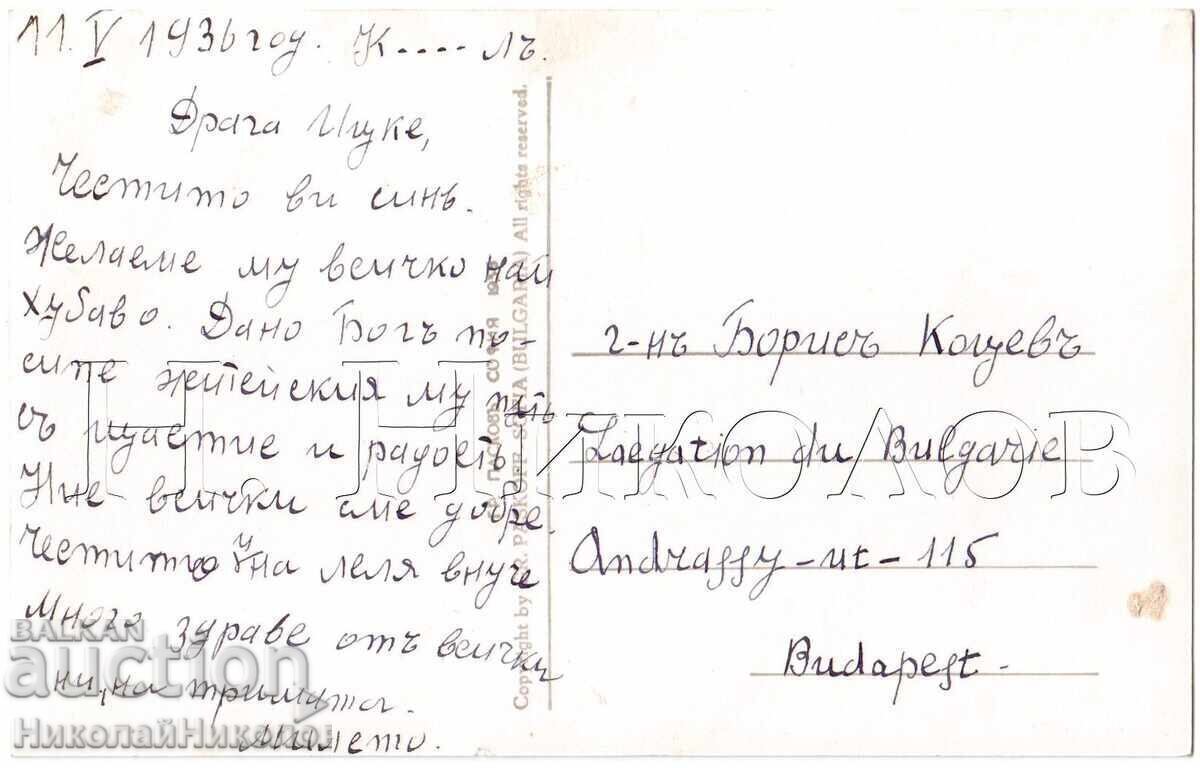 11. V 1936 год. К....лъ.
Драга Цуке,
Честито ви синъ.
Желаеме му всичко най
хубаво. Дано Богъ по-
сипе житейския му пъть
съ щастие и радость.
Ние всички сме добре.
Честито и на леля внуче
Много здраве отъ всички
ни, на тримута.
Милето.
Copyright by GR. PASKOFF SOFIA (BULGARIA) All rights reserved.
ПАСКОВЪ СОФИЯ
г-нъ Борисъ Коцевъ
Laegation du Bulgarie
Andrassy-ut-115
Budapest.
Н. НИКОЛОВ
BALKAN
auction
НиколайНиколов